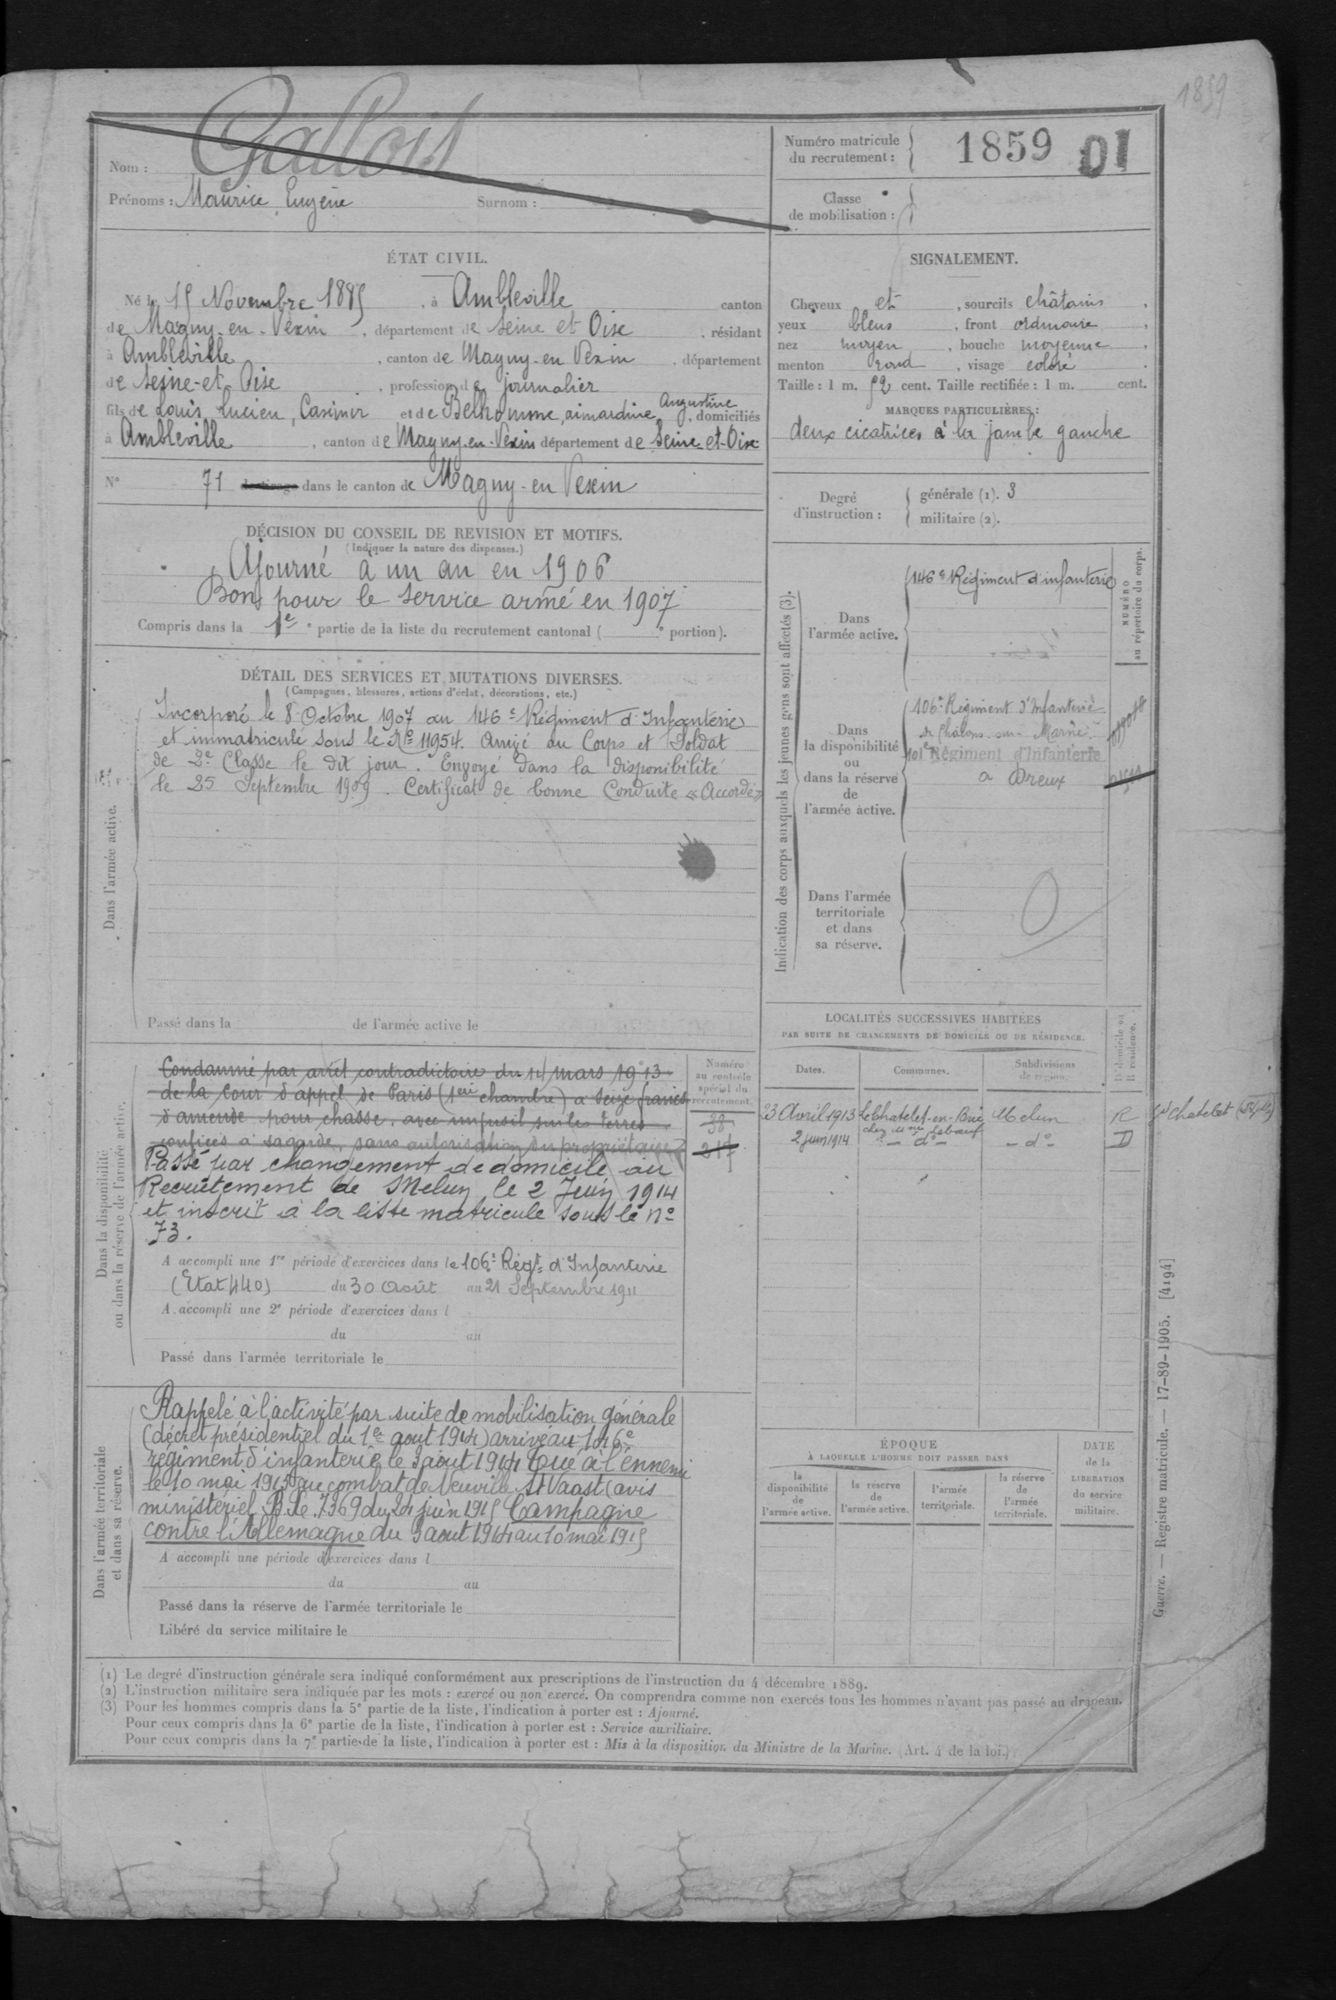 1859
Gallois
Nom :
Prénoms : Maurice Eugène Surnom :
Numéro matricule du recrutement : 1859 01
Classe de mobilisation :
ÉTAT CIVIL.
Né le 15 Novembre 1885, à Ambleville canton
de Magny-en-Vexin, département de Seine et Oise, résidant
à Ambleville, canton de Magny-en Vexin, département
de Seine-et-Oise, profession de journalier
fils de Louis, Lucien, Casimir et de Belhomme, aimardine, Augustine, domiciliés
à Ambleville, canton de Magny-en-Vexin département de Seine-et-Oise
N° 71 de tirage dans le canton de Magny-en Vexin
DÉCISION DU CONSEIL DE REVISION ET MOTIFS.
(Indiquer la nature des dispenses.)
Ajourné à un an en 1906
Bons pour le service armé en 1907
Compris dans la 1e partie de la liste du recrutement cantonal ( e portion).
DÉTAIL DES SERVICES ET MUTATIONS DIVERSES.
(Campagnes, blessures, actions d'éclat, décorations, etc.)
Dans l'armée active.
Incorporé le 8 Octobre 1907 au 146e Régiment d'Infanterie
et immatriculé sous le No 11954. Arrivé au Corps et Soldat
de 2e Classe le dit jour. Envoyé dans la disponibilité
le 25 Septembre 1909. Certificat de bonne Conduite « Accordé »
Passé dans la de l'armée active le
Dans la disponibilité
ou dans la réserve de l'armée active.
Condamné par arrêt contradictoire du 14 mars 1913
de la Cour d'appel de Paris (1ere chambre) à seize francs
d'amende pour chasse, avec un fusil sur les terres
confiées à sa garde, sans autorisation du propriétaire
Passé par changement de domicile au
Recrutement de Melun le 2 Juin 1914
et inscrit à la liste matricule sous le no
73.
A accompli une 1re période d'exercices dans le 106e Regt d'Infanterie
(Etat 440) du 30 Août au 21 Septembre 1911
A accompli une 2e période d'exercices dans l
du au
Passé dans l'armée territoriale le
Numéro
au contrôle
spécial du
recrutement.
38
217
Dans l'armée territoriale
et dans sa réserve.
Rappelé à l'activité par suite de mobilisation générale
(décret présidentiel du 1er aout 1914) arrivé au 146e
régiment d'infanterie le 3 aout 1914 Tué à l'ennemi
le 10 mai 1915 au combat de Neuville St Vaast (avis
ministériel B. Le 7369 du 24 juin 1915 Campagne
contre l'Allemagne du 3 aout 1914 au 10 mai 1915
A accompli une période d'exercices dans l
du au
Passé dans la réserve de l'armée territoriale le
Libéré du service militaire le
SIGNALEMENT.
Cheveux et, sourcils châtains,
yeux bleus, front ordinaire,
nez moyen, bouche moyenne,
menton rond, visage coloré.
Taille : 1 m. 52 cent. Taille rectifiée : 1 m. cent.
MARQUES PARTICULIÈRES :
deux cicatrices à la jambe gauche
Degré d'instruction :
générale (1). 3
militaire (2).
Indication des corps auxquels les jeunes gens sont affectés (3).
NUMÉRO
au répertoire du corps.
Dans
l'armée active.
146e Régiment d'infanterie
Dans
la disponibilité
ou
dans la réserve
de
l'armée active.
106e Régiment d'Infanterie
de Châlons-sur-Marne
101e Régiment d'Infanterie
à Dreux
Dans l'armée
territoriale
et dans
sa réserve.
LOCALITÉS SUCCESSIVES HABITÉES
PAR SUITE DE CHANGEMENTS DE DOMICILE OU DE RÉSIDENCE.
Dates. Communes. Subdivisions de région. D domicile ou R résidence.
23 Avril 1913 Le Chatelet-en-Brie Melun R
chez Mme Leboeuf
2 juin 1914 - do - - do - D
ÉPOQUE
À LAQUELLE L'HOMME DOIT PASSER DANS
la disponibilité de l'armée active.
la reserve de l'armée active.
l'armée territoriale.
la réserve de l'armée territoriale.
DATE
de la
LIBÉRATION
du service
militaire.
Guerre. — Registre matricule. — 17-89-1905. [4194]
(1) Le degré d'instruction générale sera indiqué conformément aux prescriptions de l'instruction du 4 décembre 1889.
(2) L'instruction militaire sera indiquée par les mots : exercé ou non exercé. On comprendra comme non exercés tous les hommes n'ayant pas passé au drapeau.
(3) Pour les hommes compris dans la 5e partie de la liste, l'indication à porter est : Ajourné.
Pour ceux compris dans la 6e partie de la liste, l'indication à porter est : Service auxiliaire.
Pour ceux compris dans la 7e partie de la liste, l'indication à porter est : Mis à la disposition du Ministre de la Marine. (Art. 4 de la loi.)